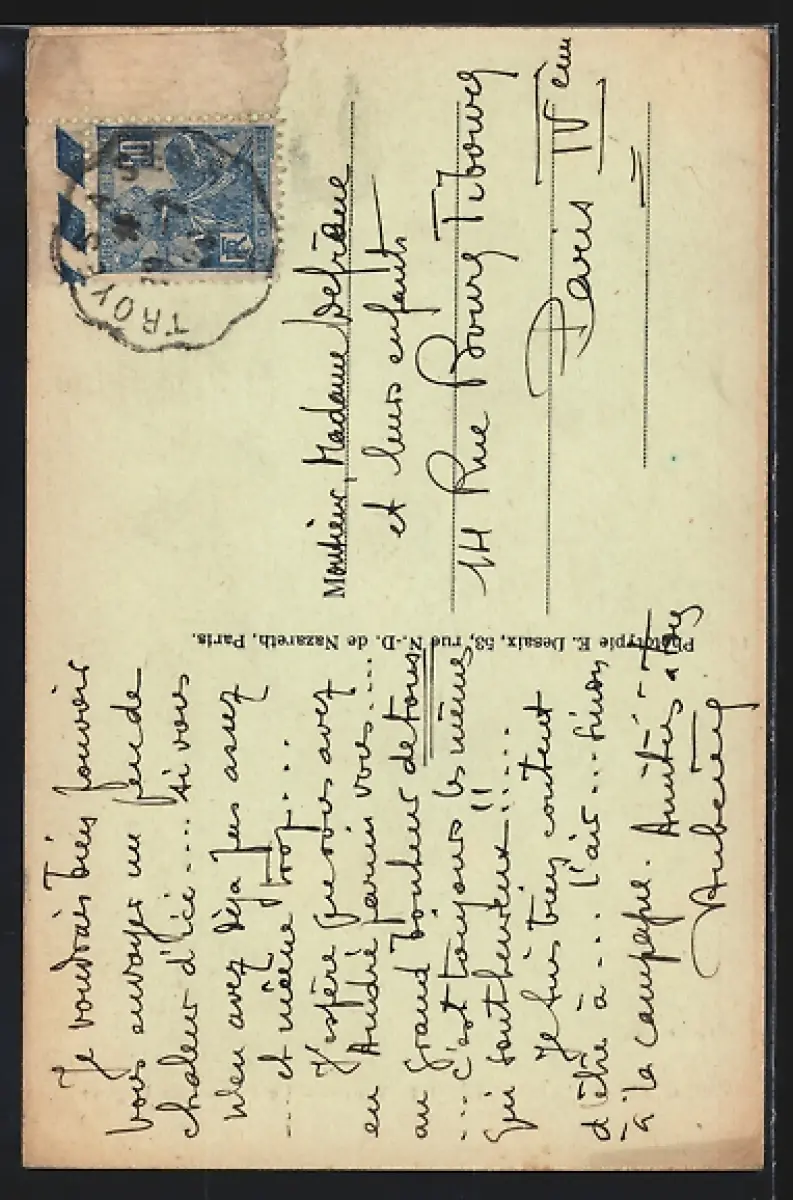 Je voudrais bien pouvoir
vous envoyer un peu de
chaleur d'ici.... si vous
n'en avez déja pas assez
.... et même trop....
J'espère que vous avez
eu André parmi vous....
au grand bonheur de tous
... C'est toujours les mêmes
qui sont heureux!!....
Je suis bien content
d'être à.... l'air... sinon
à la campagne. Amitiés à tous
Phototypie E. Desaix, 53, rue N.-D. de Nazareth, Paris.
Monsieur, Madame
et leurs enfants
14 Rue Bourg Tibourg
Paris IVeme
TROYES
50
RF